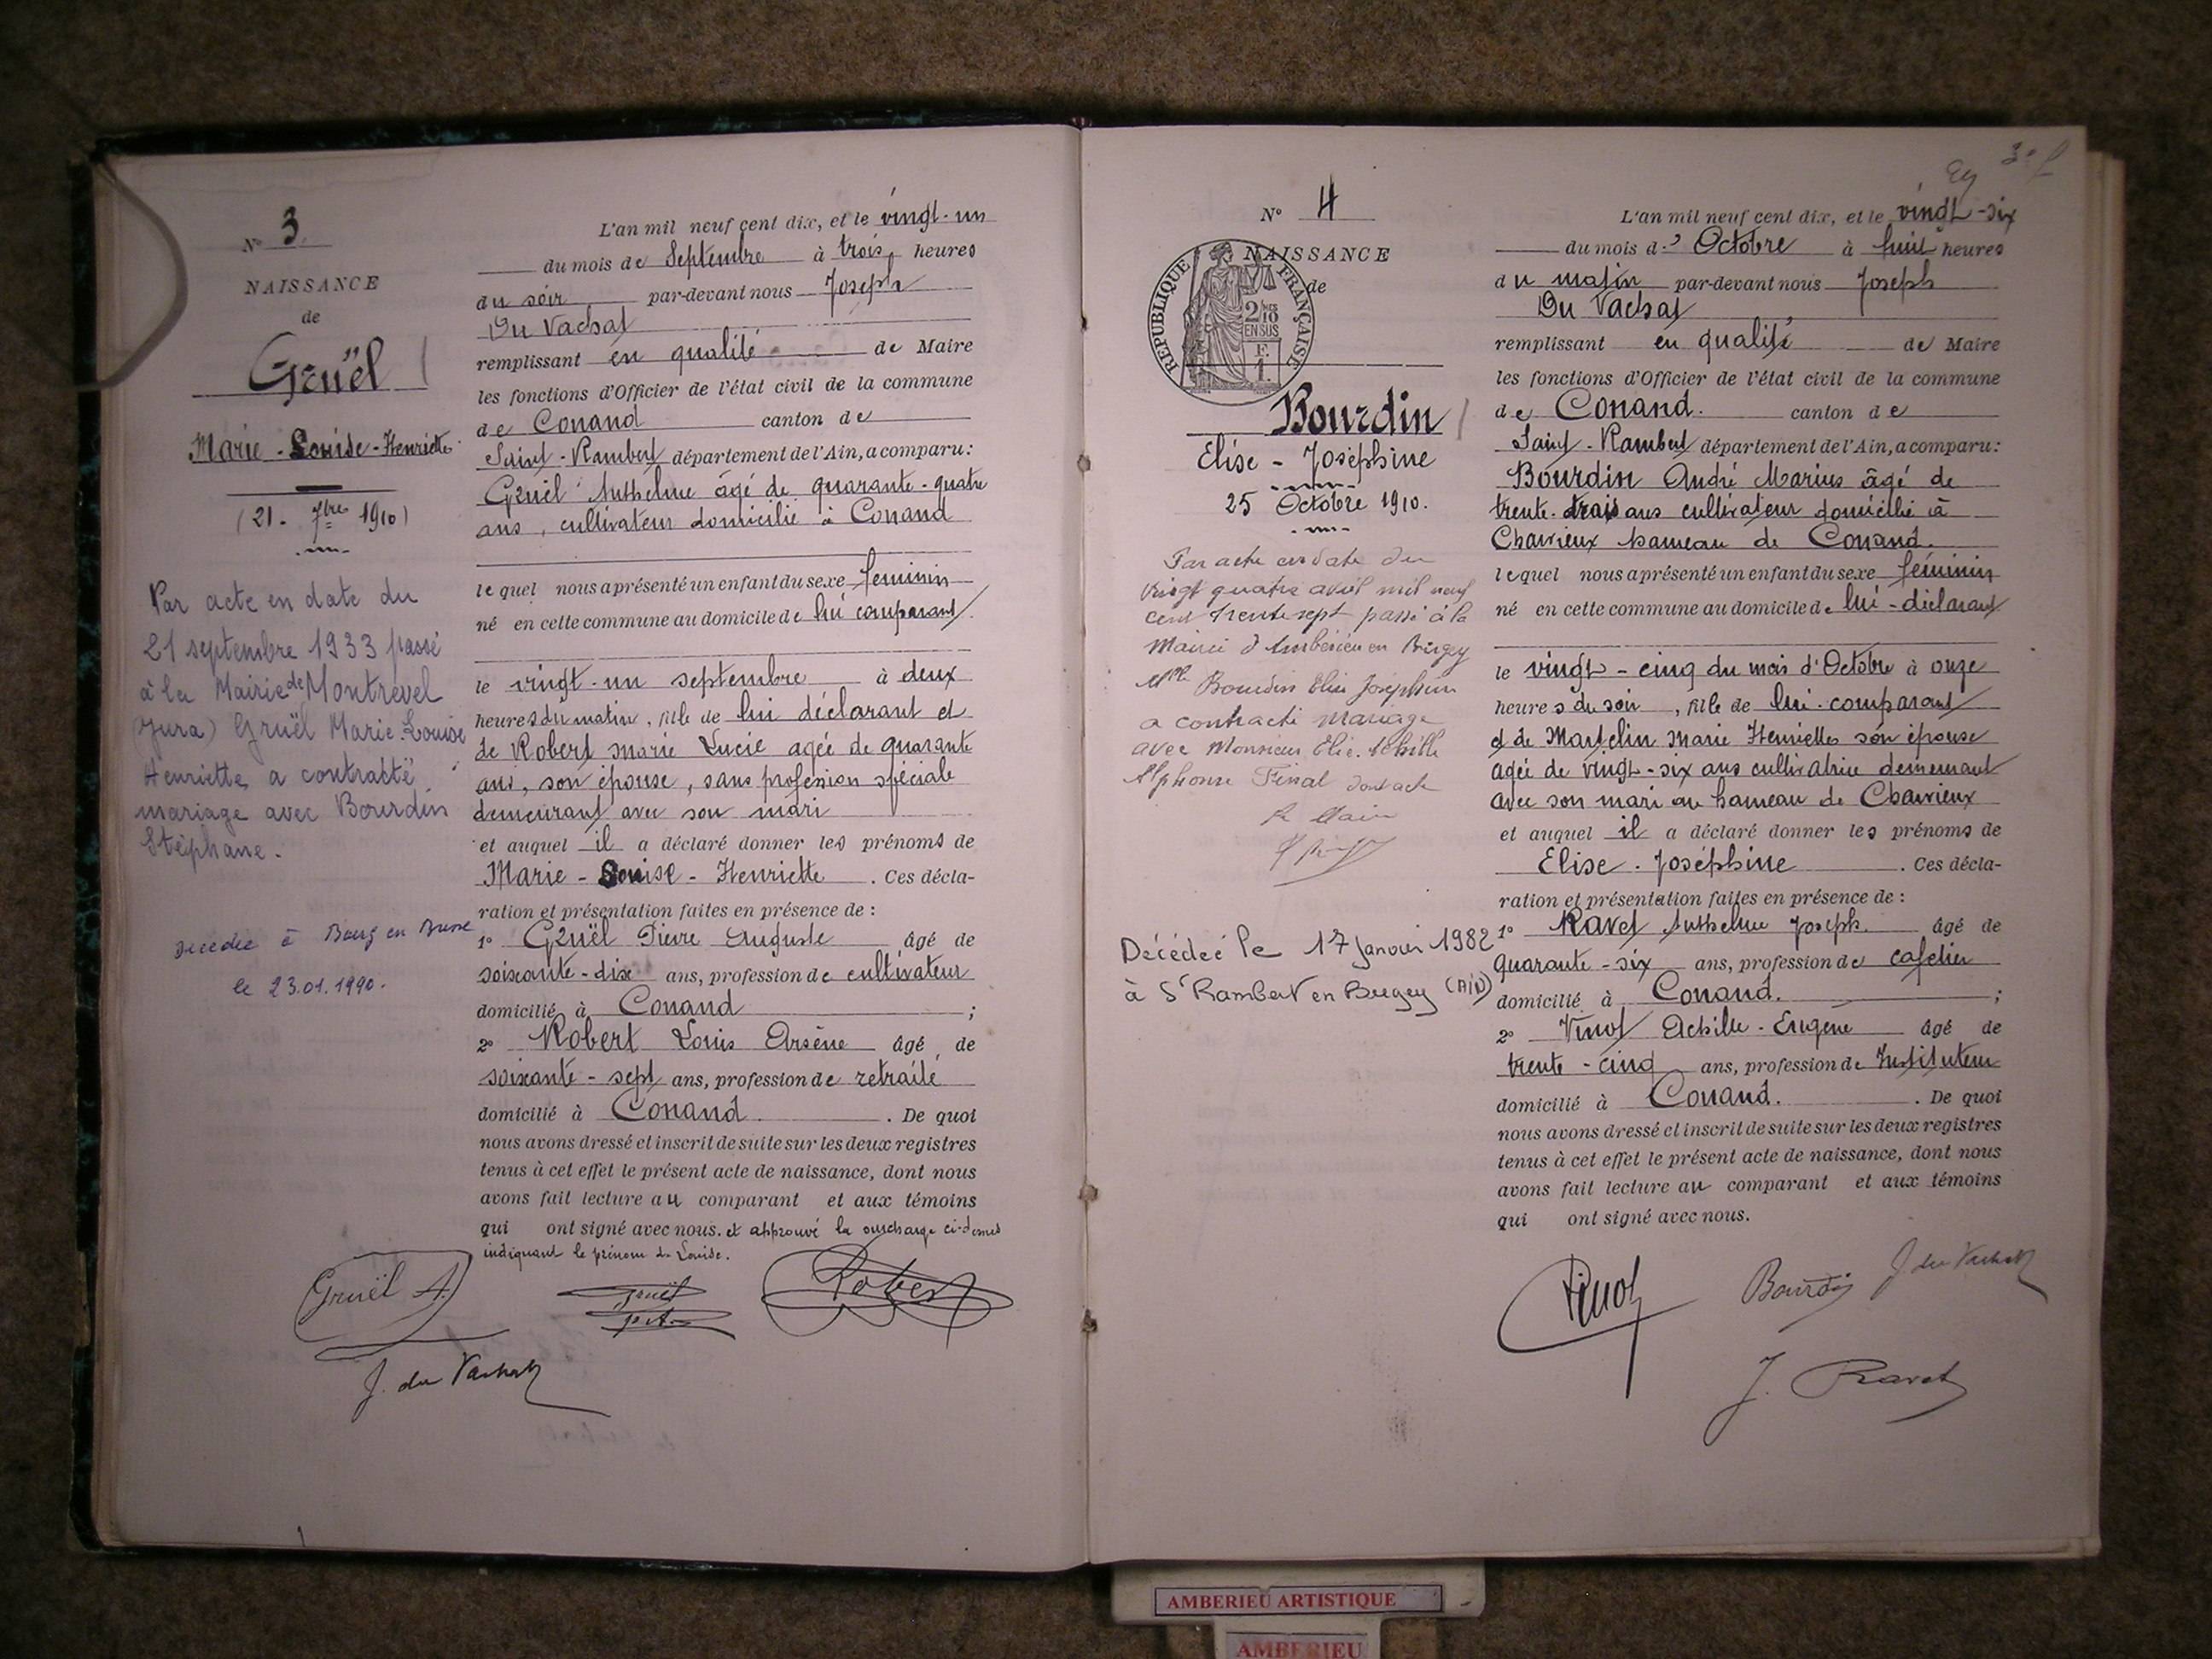 N° 3
NAISSANCE
de
Gruël
Marie-Louise-Henriette
(21. 7bre 1910)
Par acte en date du
21 septembre 1933 passé
à la Mairie de Montrevel
(Jura) Gruël Marie-Louise
Henriette, a contracté
mariage avec Bourdin
Stéphane.
Décédée à Bourg en Bresse
le 23.01.1990.
L'an mil neuf cent dix, et le vingt-un
du mois de Septembre à trois heures
du soir par-devant nous Joseph
Du Vachat
remplissant en qualité de Maire
les fonctions d'Officier de l'état civil de la commune
de Conand canton de
Saint-Rambert département de l'Ain, a comparu:
Gruël Anthelme âgé de quarante-quatre
ans, cultivateur domicilié à Conand
lequel nous a présenté un enfant du sexe féminin
né en cette commune au domicile de lui comparant.
le vingt-un septembre à deux
heures du matin, fille de lui déclarant et
de Robert Marie Lucie agée de quarante
ans, son épouse, sans profession spéciale
demeurant avec son mari
et auquel il a déclaré donner les prénoms de
Marie-Louise-Henriette. Ces décla-
ration et présentation faites en présence de :
1° Gruël Pierre Auguste âgé de
soixante-dix ans, profession de cultivateur
domicilié à Conand ;
2° Robert Louis Arsène âgé de
soixante-sept ans, profession de retraité
domicilié à Conand. De quoi
nous avons dressé et inscrit de suite sur les deux registres
tenus à cet effet le présent acte de naissance, dont nous
avons fait lecture au comparant et aux témoins
qui ont signé avec nous. et approuvé la surcharge ci-dessus
indiquant le prénom de Louise.
Gruël A.
gruël
Robert
J. du Vachat
3e f
N° 4
NAISSANCE
de
REPUBLIQUE FRANÇAISE
2/10
EN SUS
F.
1.
Bourdin
Elise-Joséphine
25 Octobre 1910.
Par acte en date du
vingt quatre avril mil neuf
cent trente sept passé à la
Mairie d'Ambérieu en Bugey
Mlle Bourdin Elise Joséphine
a contracté mariage
avec Monsieur Elie Achille
Alphonse Final dont acte
Le Maire
Décédée le 17 janvier 1982
à St Rambert en Bugey (AIN)
L'an mil neuf cent dix, et le vingt-six
du mois d' Octobre à huit heures
du matin par-devant nous Joseph
Du Vachat
remplissant en qualité de Maire
les fonctions d'Officier de l'état civil de la commune
de Conand. canton de
Saint-Rambert département de l'Ain, a comparu:
Bourdin André Marius âgé de
trente-trois ans cultivateur domicilié à
Charvieux hameau de Conand.
lequel nous a présenté un enfant du sexe féminin
né en cette commune au domicile de lui-déclarant
le vingt-cinq du mois d'Octobre à onze
heures du soir, fille de lui-comparant
et de Martelin Marie Henriette son épouse
agée de vingt-six ans cultivatrice demeurant
avec son mari au hameau de Charvieux
et auquel il a déclaré donner les prénoms de
Elise-Joséphine. Ces décla-
ration et présentation faites en présence de :
1° Ravet Anthelme Joseph. âgé de
quarante-six ans, profession de cafetier
domicilié à Conand. ;
2° Vinot Achille-Eugène âgé de
trente-cinq ans, profession de Instituteur
domicilié à Conand. De quoi
nous avons dressé et inscrit de suite sur les deux registres
tenus à cet effet le présent acte de naissance, dont nous
avons fait lecture au comparant et aux témoins
qui ont signé avec nous.
Vinot
Bourdin
J. du Vachat
J. Ravet
AMBERIEU ARTISTIQUE
AMBERIEU